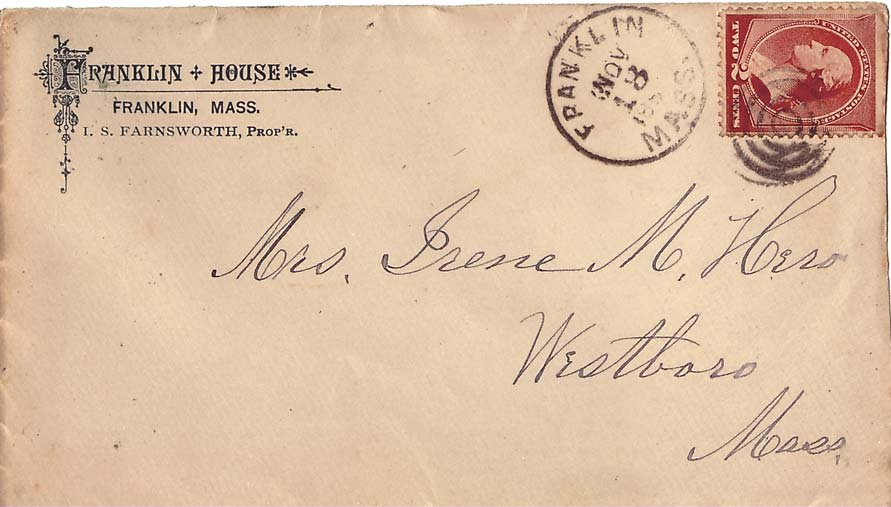 FRANKLIN + HOUSE
FRANKLIN, MASS.
I. S. FARNSWORTH, PROP'R.
FRANKLIN MASS.
NOV
8
UNITED STATES POSTAGE
TWO 2 CENTS
Mrs. Irene M. Hero
Westboro
Mass.